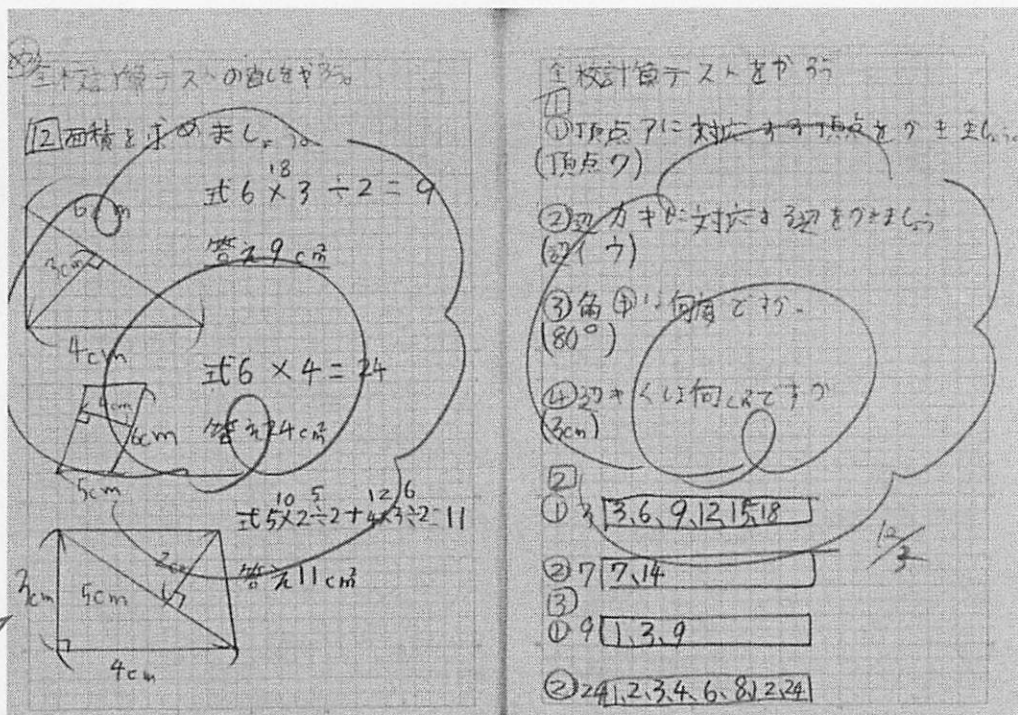 全校計算テストの直しをがんばろう。
12 面積を求めましょう。
6cm
3cm
4cm
18
式6×3÷2=9
答え9cm²
4cm
6cm
5cm
式6×4=24
答え24cm²
3cm
5cm
2cm
4cm
10 5 12 6
式5×2÷2+4×3÷2=11
答え11cm²
全校計算テストをがんばろう
1
①頂点アに対応する頂点をかきましょう。
(頂点ク)
②辺カキに対応する辺をかきましょう
(辺イウ)
③角㋖は何度ですか。
(80°)
④辺キクは何cmですか
(3cm)
2
① 3 3、6、9、12、15、18
② 7 7、14
3
① 9 1、3、9
② 24 1、2、3、4、6、8、12、24
12/3